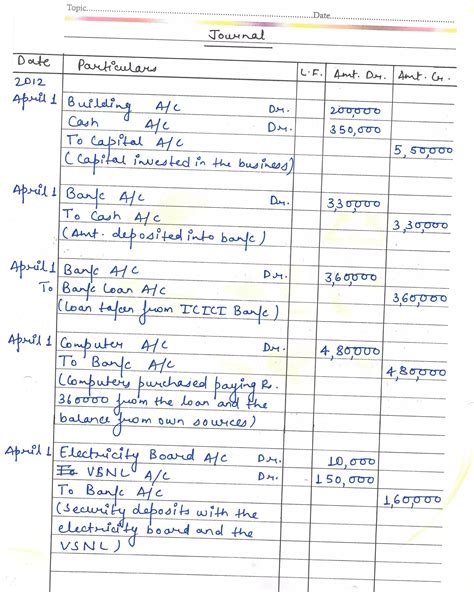 Topic Date
Journal
Date Particulars L.F. Amt. Dr. Amt. Cr.
2012
April 1 Building A/C Dr. 200,000
Cash A/C Dr. 350,000
To Capital A/C 5,50,000
(Capital invested in the business)
April 1 Bank A/C Dr. 3,30,000
To Cash A/C 3,30,000
(Amt. deposited into bank)
April 1 Bank A/C Dr. 3,60,000
To Bank Loan A/C 3,60,000
(Loan taken from ICICI Bank)
April 1 Computer A/C Dr. 4,80,000
To Bank A/C 4,80,000
(Computers purchased paying Rs.
360000 from the loan and the
balance from own sources)
April 1 Electricity Board A/C Dr. 10,000
VSNL A/C Dr. 150,000
To Bank A/C 1,60,000
(Security deposits with the
electricity board and the
VSNL)